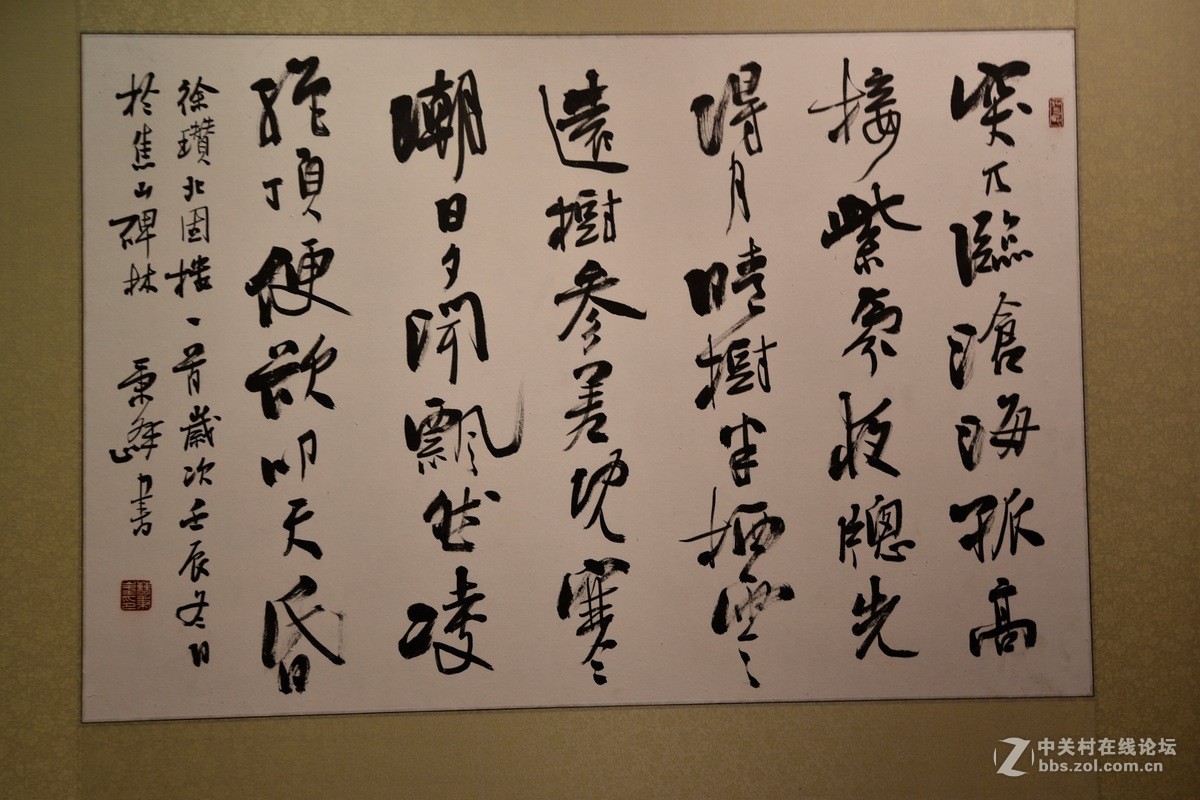 突兀臨滄海孤高
接紫氛夜牕先
得月晴樹半栖雲
遠樹參差現寒
潮日夕聞飄然凌
絶頂便欲叩天昏
徐瓚北固樓一首歲次壬辰冬日
於焦山碑林 峰書
中关村在线论坛
bbs.zol.com.cn